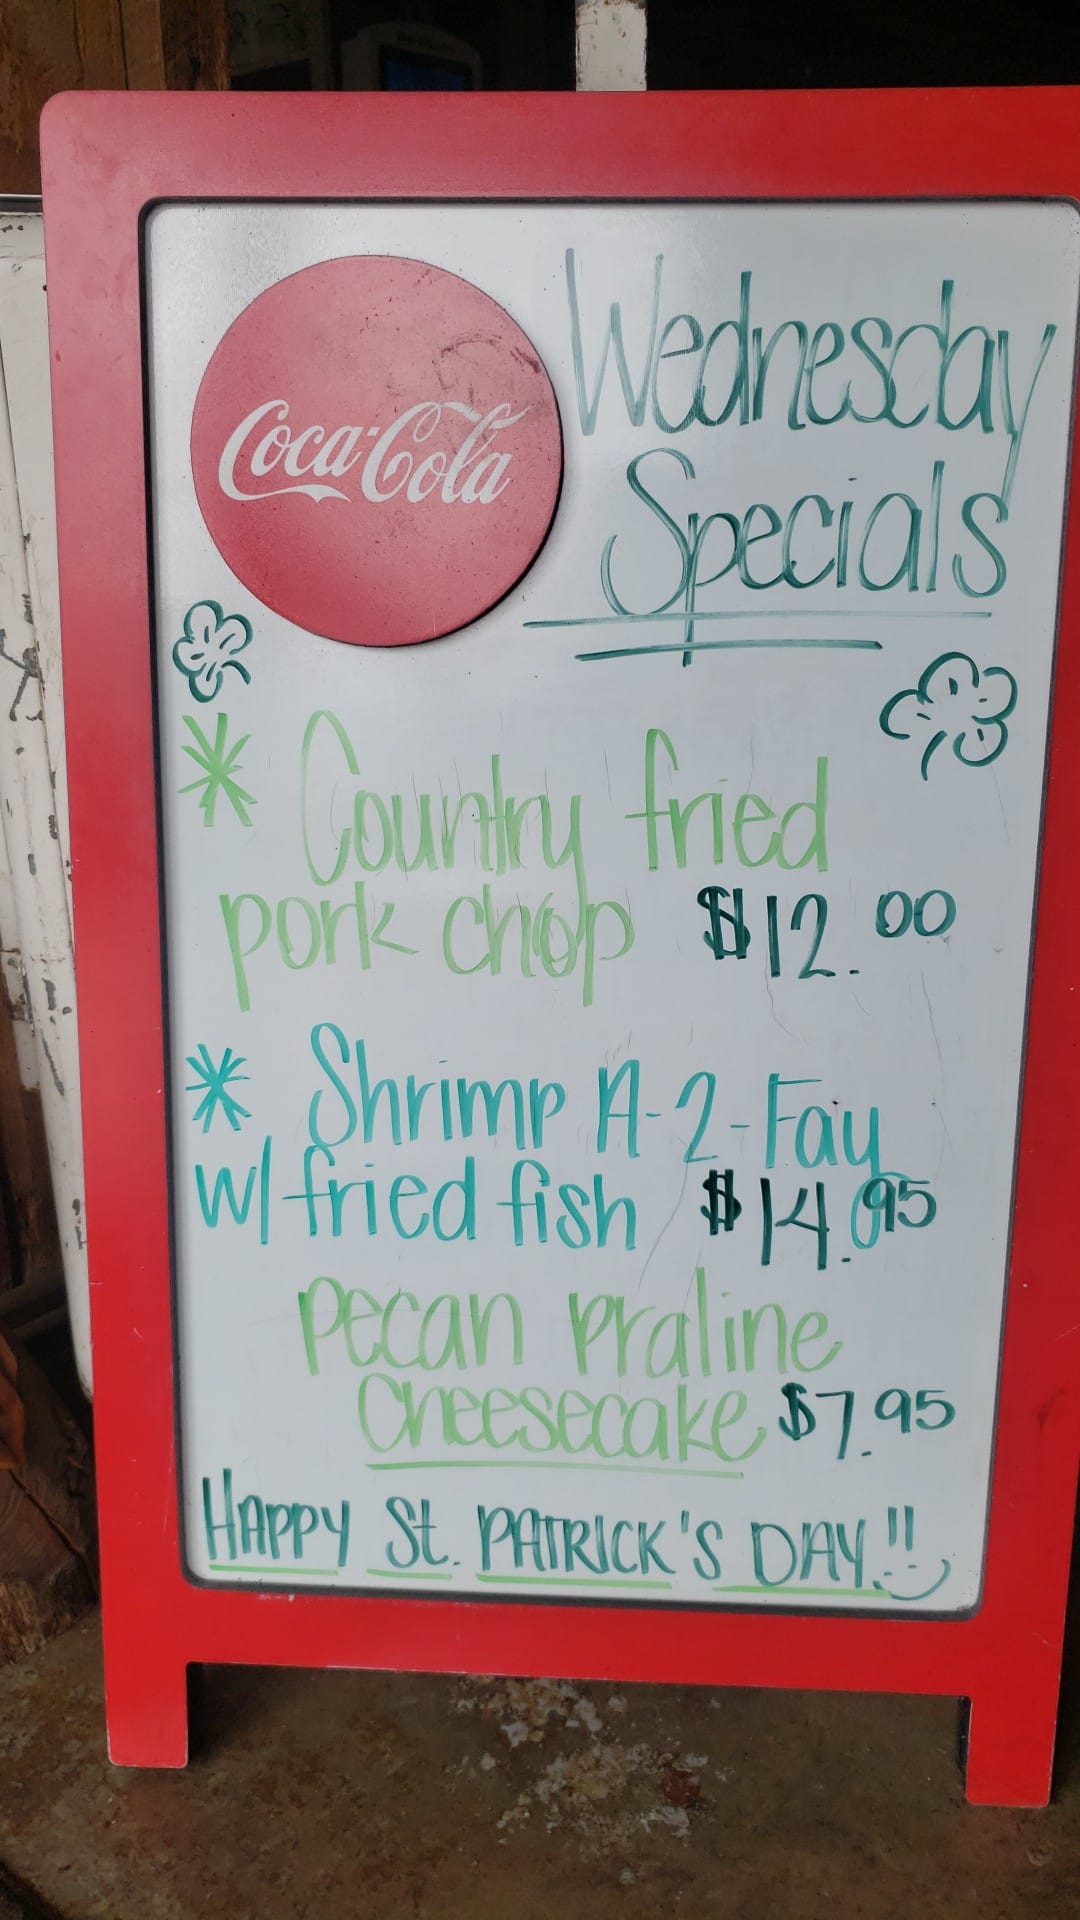 Coca-Cola
Wednesday
Specials
* Country fried
pork chop $12.00
* Shrimp A-2-Fay
w/ fried fish $14.95
pecan praline
Cheesecake $7.95
HAPPY St. PATRICK'S DAY!!